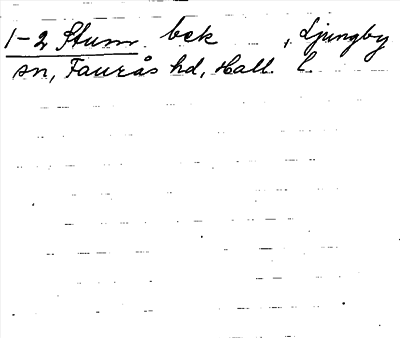 1-2 Stum bek , Ljungby
sn, Faurås hd, Hall. l.